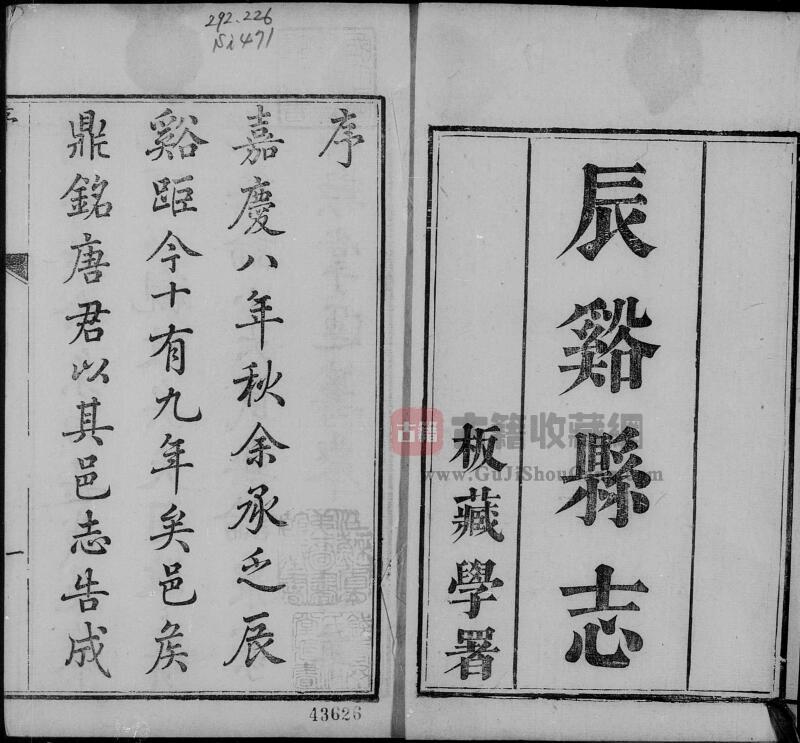 292.226
Ni471
辰谿縣志
板藏學署
序
嘉慶八年秋余承乏辰
谿距今十有九年矣邑矦
鼎銘唐君以其邑志告成
一
43626
古籍
古籍收藏網
www.GuJiShou